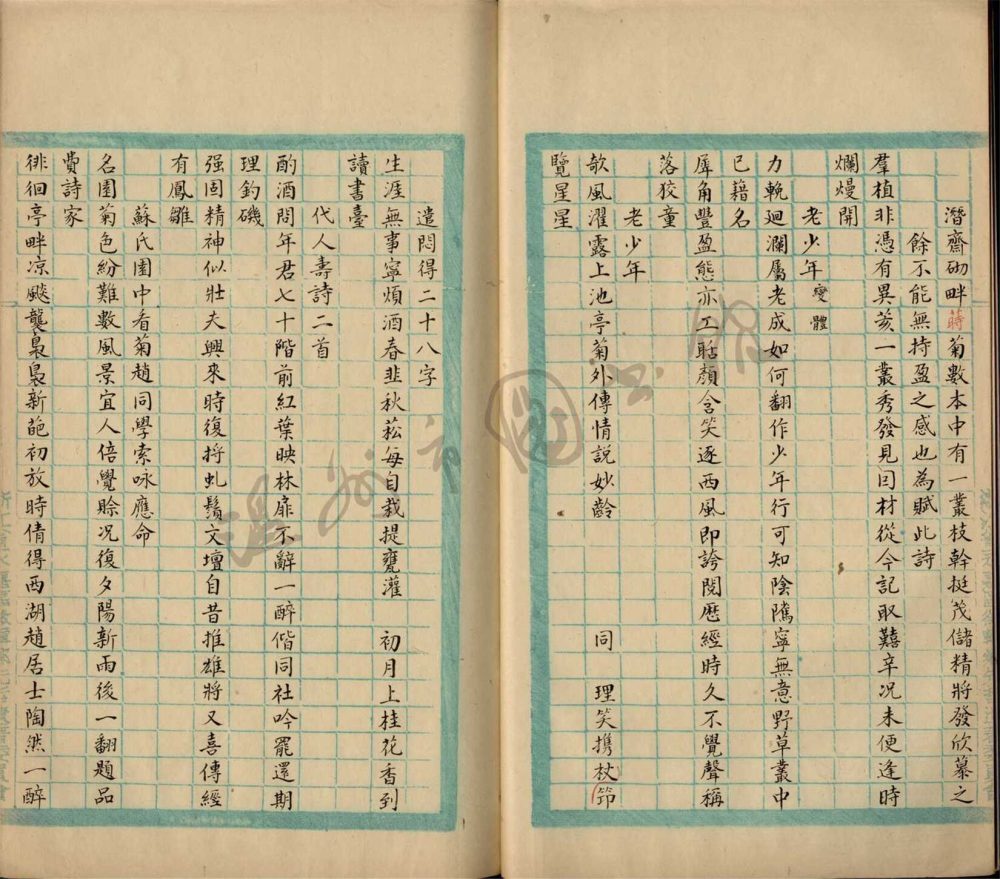 潛齋砌畔蒔菊數本中有一叢枝幹挺茂儲精將發欣慕之
餘不能無持盈之感也為賦此詩
羣植非憑有異荄一叢秀發見因材從今記取囏辛况未便逢時
爛熳開
老少年變體
力輓廻瀾屬老成如何翻作少年行可知陰隲寧無意野草叢中
已藉名
犀角豐盈態亦工䀨顏含笑逐西風即誇閱歷經時久不覺聲稱
落狡童
老少年
欹風濯露上池亭菊外傳情説妙齡 同 理笑携杖笻
覽星星
遣悶得二十八字
生涯無事寧煩酒春韭秋菘每自栽提甕灌 初月上桂花香到
讀書臺
代人壽詩二首
酌酒問年君七十階前紅葉映林扉不辭一醉偕同社吟罷還期
理釣磯
强固精神似壯夫興來時復捋虬鬚文壇自昔推雄將又喜傳經
有鳳雛
蘇氏園中看菊趙同學索咏應命
名園菊色紛難數風景宜人倍覺賒况復夕陽新雨後一翻題品
費詩家
徘徊亭畔凉颷襲裊裊新葩初放時倩得西湖趙居士陶然一醉
温州市圖書館